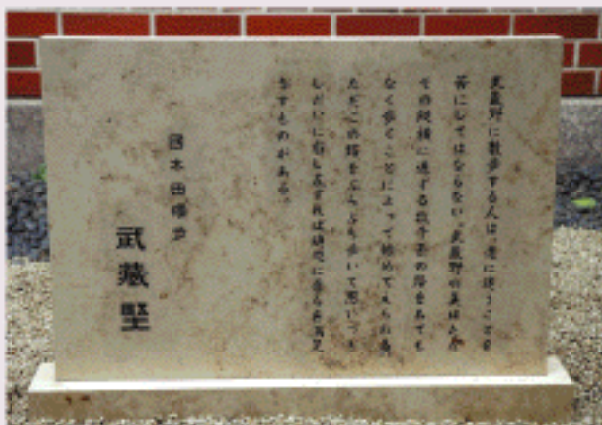 武蔵野に散歩する人は、道に迷うことを
苦にしてはならない。武蔵野の美はただ
その縦横に通ずる数千条の路をあても
なく歩くことによって始めてえられる
ただこの路をぶらぶら歩いて思いつき
しだいに右し左すれば随処に吾らを満足
すものがある。
國木田獨歩
武蔵野